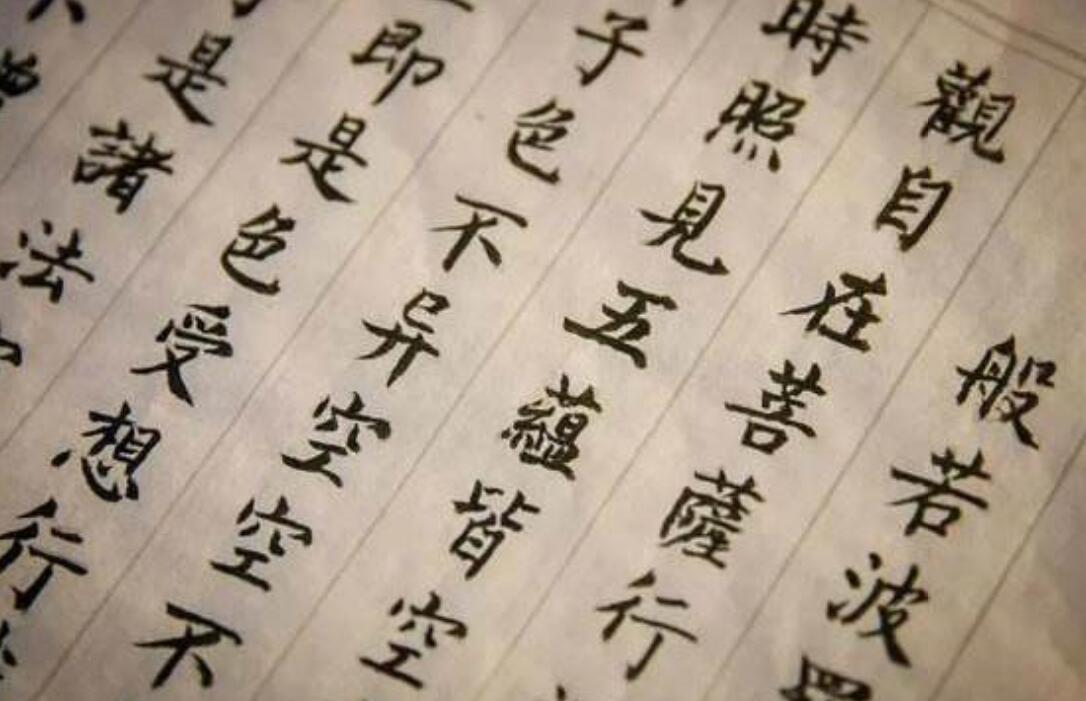 般若波
觀自在菩薩行
時照見五蘊皆空
子色不异空空不
即是色受想行
是諸法